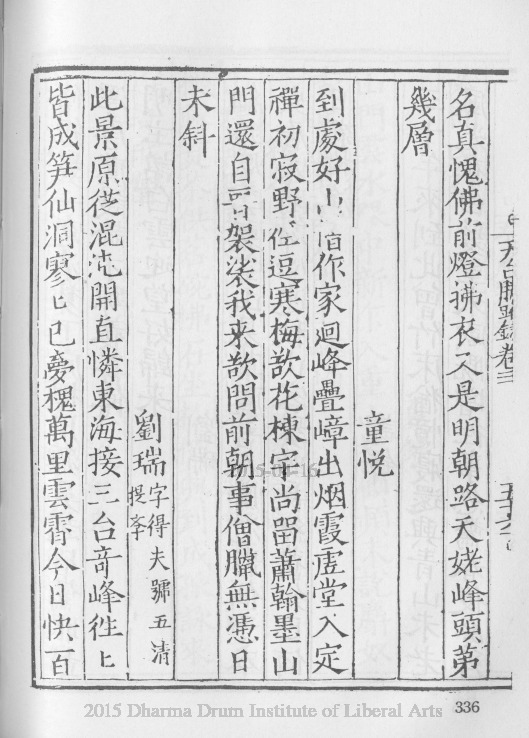 名真愧佛前燈拂衣又是明朝路天姥峰頭第
幾層
童悅
到處好山皆作家迴峰疊嶂出烟霞虛堂入定
禪初寂野徑逗寒梅欲花棟宇尚留蕭翰墨山
門還自 袈裟我来欲問前朝事僧臘無憑日
未斜
劉瑞字得夫號五清
提李
此景原從混沌開直憐東海接三台奇峰往上
皆成笋仙洞寒 已夢槐萬里雲霄今日快百
天台勝蹟錄卷三
五十六
336
2015 Dharma Drum Institute of Liberal Arts